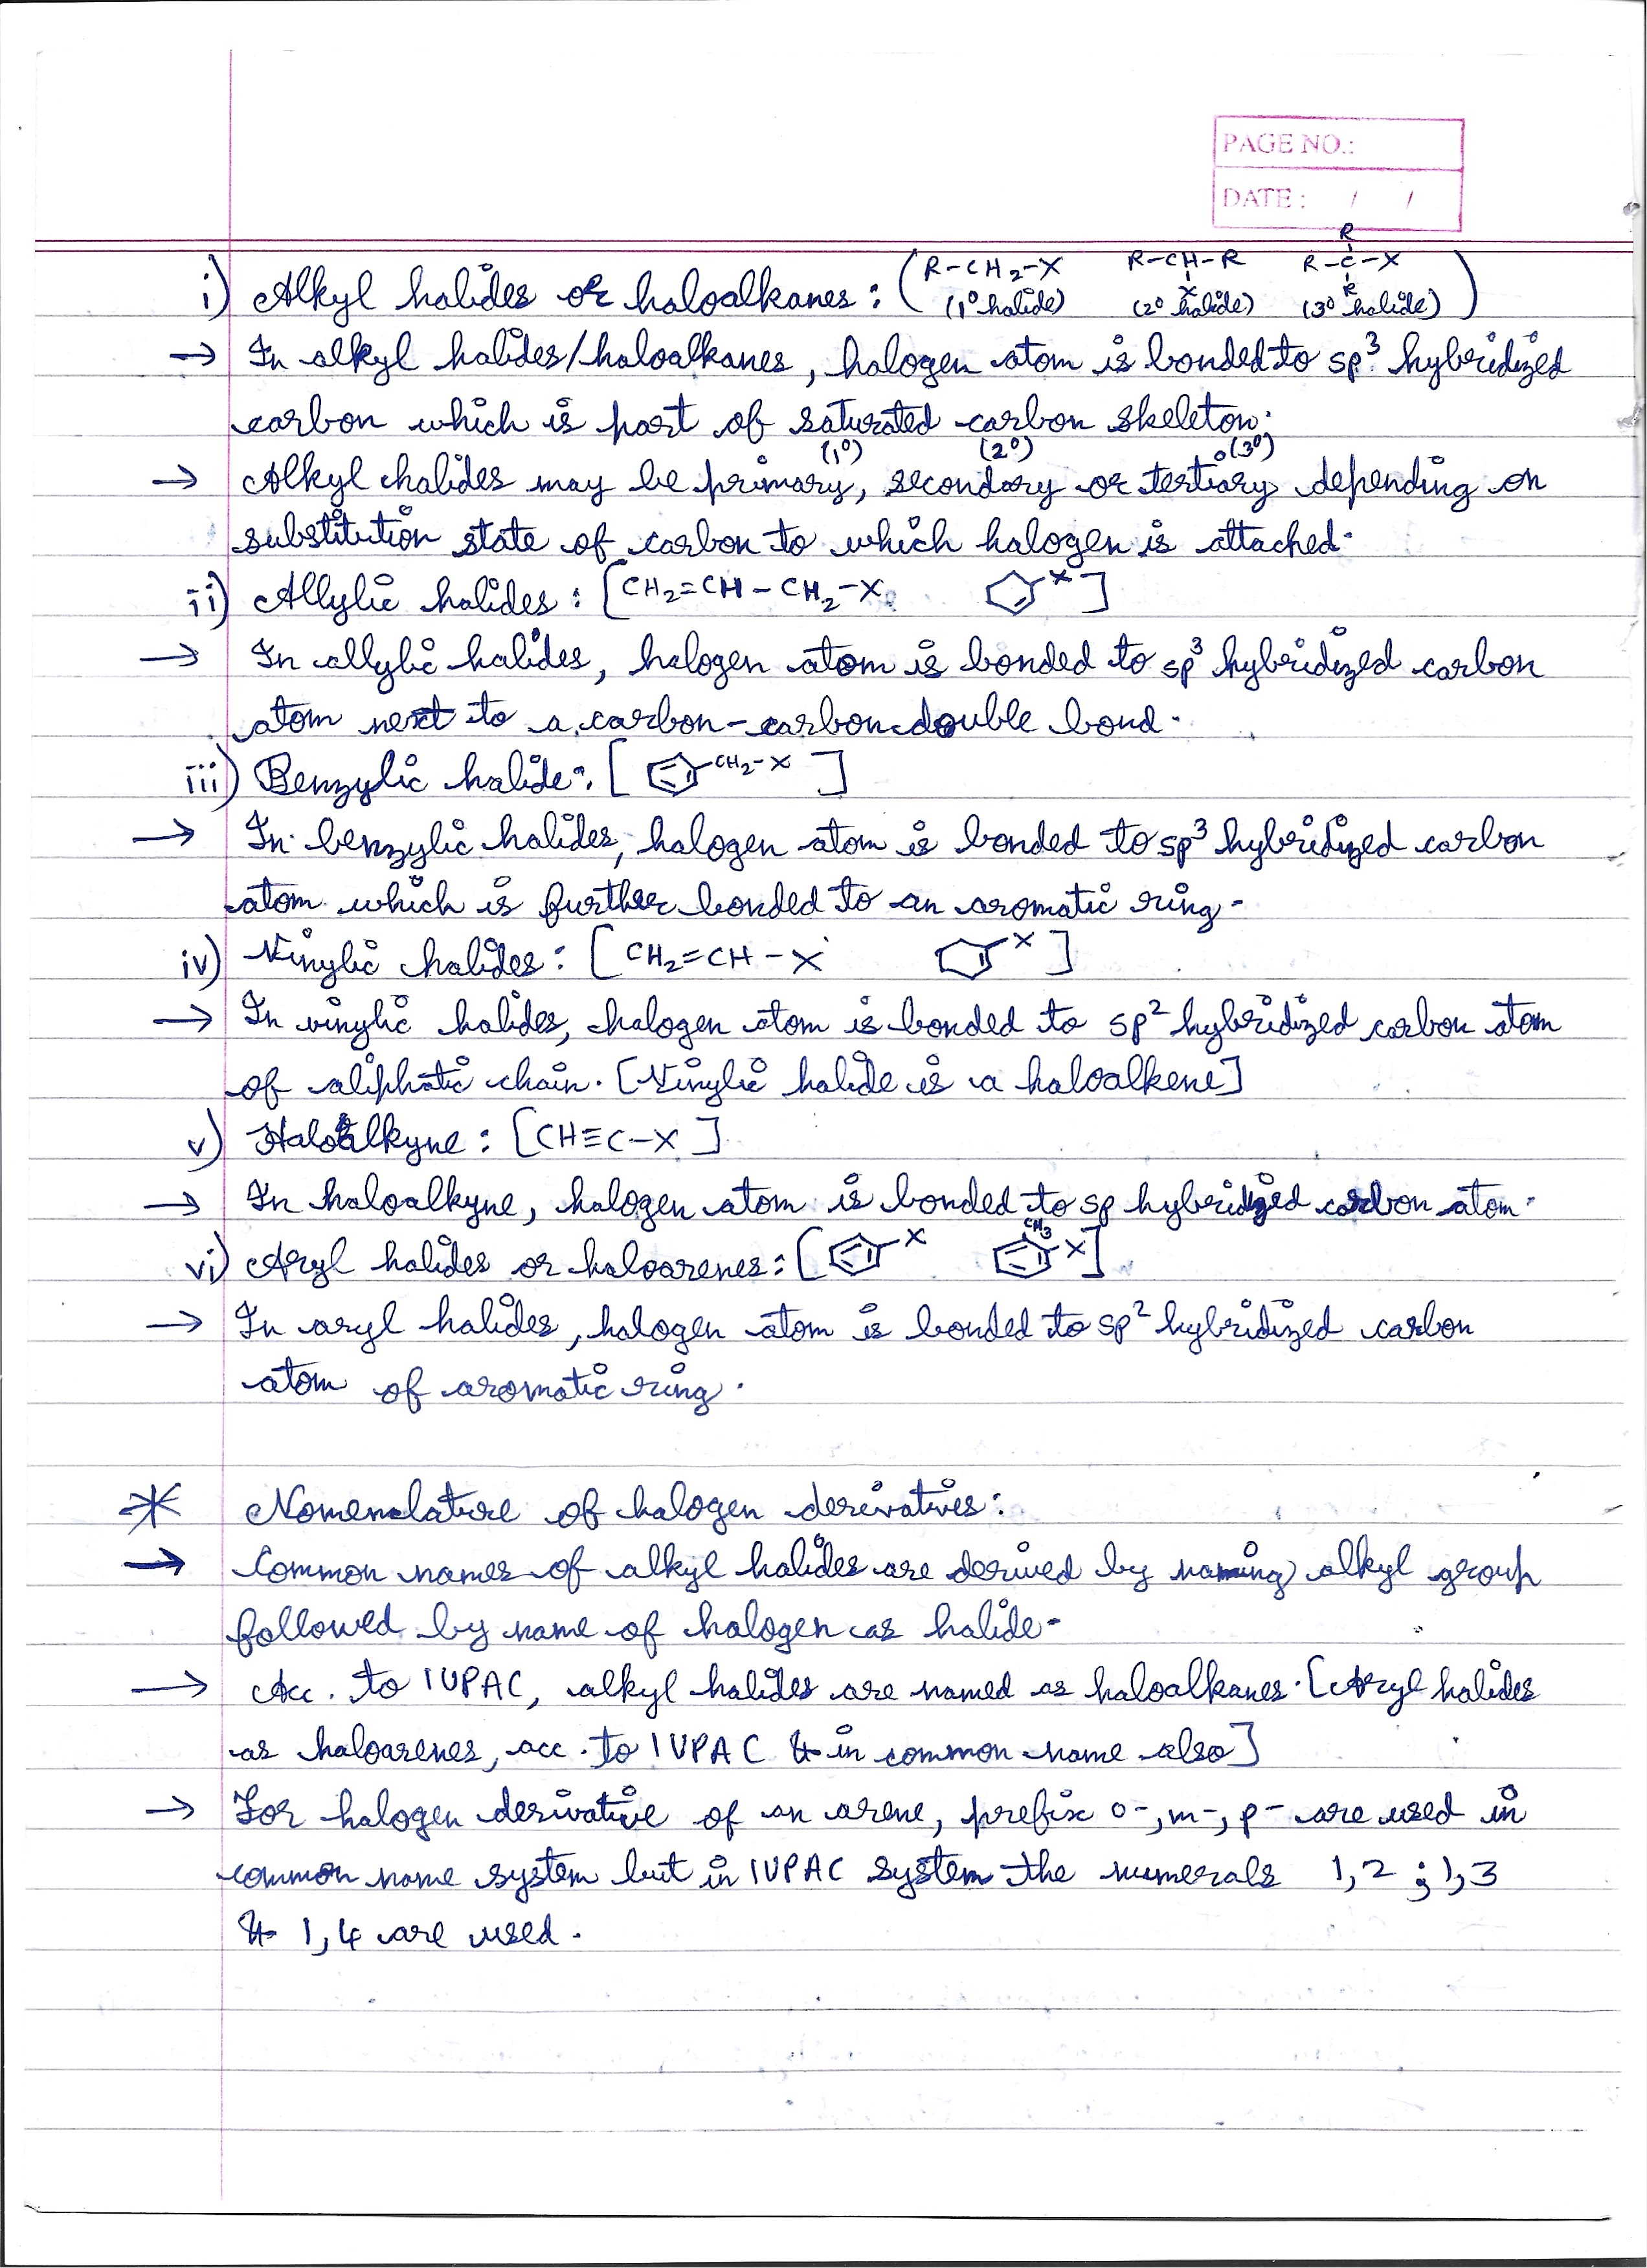 PAGE NO.:
DATE : / /
i) Alkyl halides or haloalkanes : (R-CH₂-X (1° halide) R-CH-R X (2° halide) R R-C-X R (3° halide))
→ In alkyl halides/haloalkanes, halogen atom is bonded to sp³ hybridized
carbon which is part of saturated carbon skeleton.
(1°) (2°) (3°)
→ Alkyl halides may be primary, secondary or tertiary depending on
substitution state of carbon to which halogen is attached.
ii) Allylic halides : [CH₂=CH-CH₂-X X]
→ In allylic halides, halogen atom is bonded to sp³ hybridized carbon
atom next to a carbon-carbon double bond.
iii) Benzylic halide : [CH₂-X]
→ In benzylic halides, halogen atom is bonded to sp³ hybridized carbon
atom which is further bonded to an aromatic ring.
iv) Vinylic halides : [CH₂=CH-X X]
→ In vinylic halides, halogen atom is bonded to sp² hybridized carbon atom
of aliphatic chain. [Vinylic halide is a haloalkene]
v) Haloalkyne : [CH≡C-X]
→ In haloalkyne, halogen atom is bonded to sp hybridized carbon atom.
vi) Aryl halides or haloarenes : [X CH₃ X]
→ In aryl halides, halogen atom is bonded to sp² hybridized carbon
atom of aromatic ring.
* Nomenclature of halogen derivatives :
→ Common names of alkyl halides are derived by naming alkyl group
followed by name of halogen as halide.
→ Acc. to IUPAC, alkyl halides are named as haloalkanes. [Aryl halides
as haloarenes, acc. to IUPAC & in common name also]
→ For halogen derivative of an arene, prefix o-, m-, p- are used in
common name system but in IUPAC system the numerals 1,2 ; 1,3
& 1,4 are used.